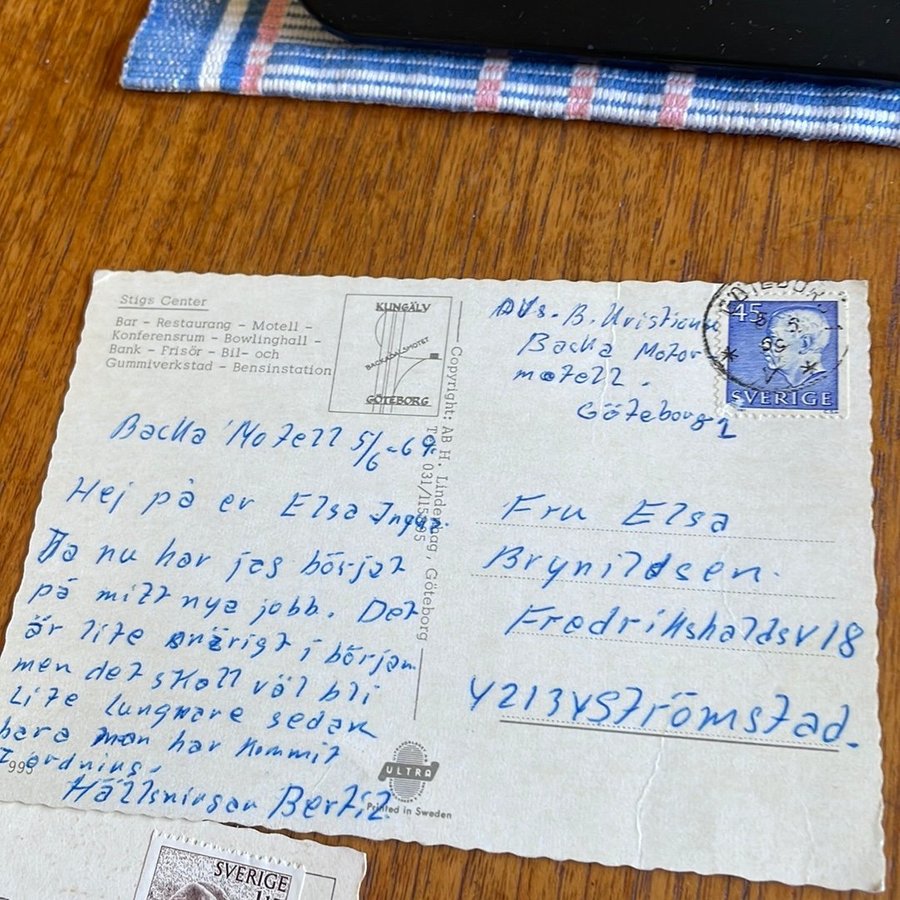 Stigs Center
Bar - Restaurang - Motell -
Konferensrum - Bowlinghall -
Bank - Frisör - Bil- och
Gummiverkstad - Bensinstation
KUNGÄLV
BACKADALSMOTET
GÖTEBORG
Copyright: AB H. Lindenhag, Göteborg
031/115895
Avs. B.
Backa Motor
motell.
Göteborg 2
45
SVERIGE
Backa Motell 5/6-69.
Hej på er Elsa Ingar.
Ja nu har jag börjat
på mitt nya jobb. Det
är lite snärigt i början
men det skall väl bli
Lite lungnare sedan
bara man har kommit
I ordning.
Hällsningar Bertil
Fru Elsa
Brynildsen.
Fredrikshaldsv 18
Strömstad.
995
ULTRA
Printed in Sweden
SVERIGE